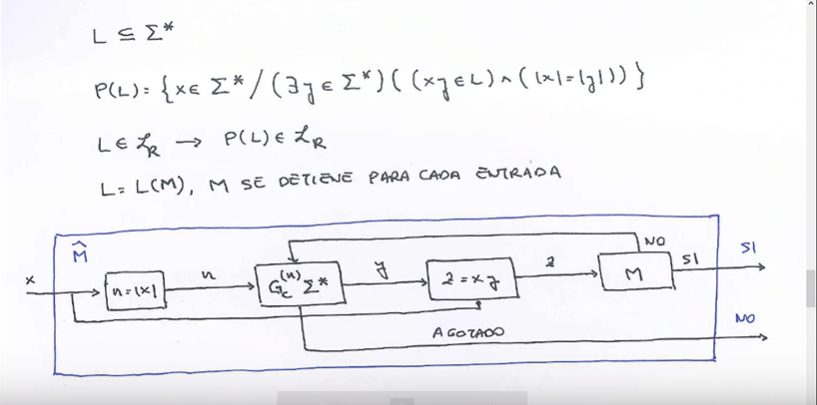 L ⊆ Σ*
P(L) = {x ∈ Σ* / (∃y ∈ Σ*) ((xy ∈ L) ∧ (|x| = |y|))}
L ∈ ℒR → P(L) ∈ ℒR
L = L(M), M SE DETIENE PARA CADA ENTRADA
M̂
NO
SI
SI
x
n = |x|
n
Gc(n) Σ*
y
z = xy
z
M
AGOTADO
NO